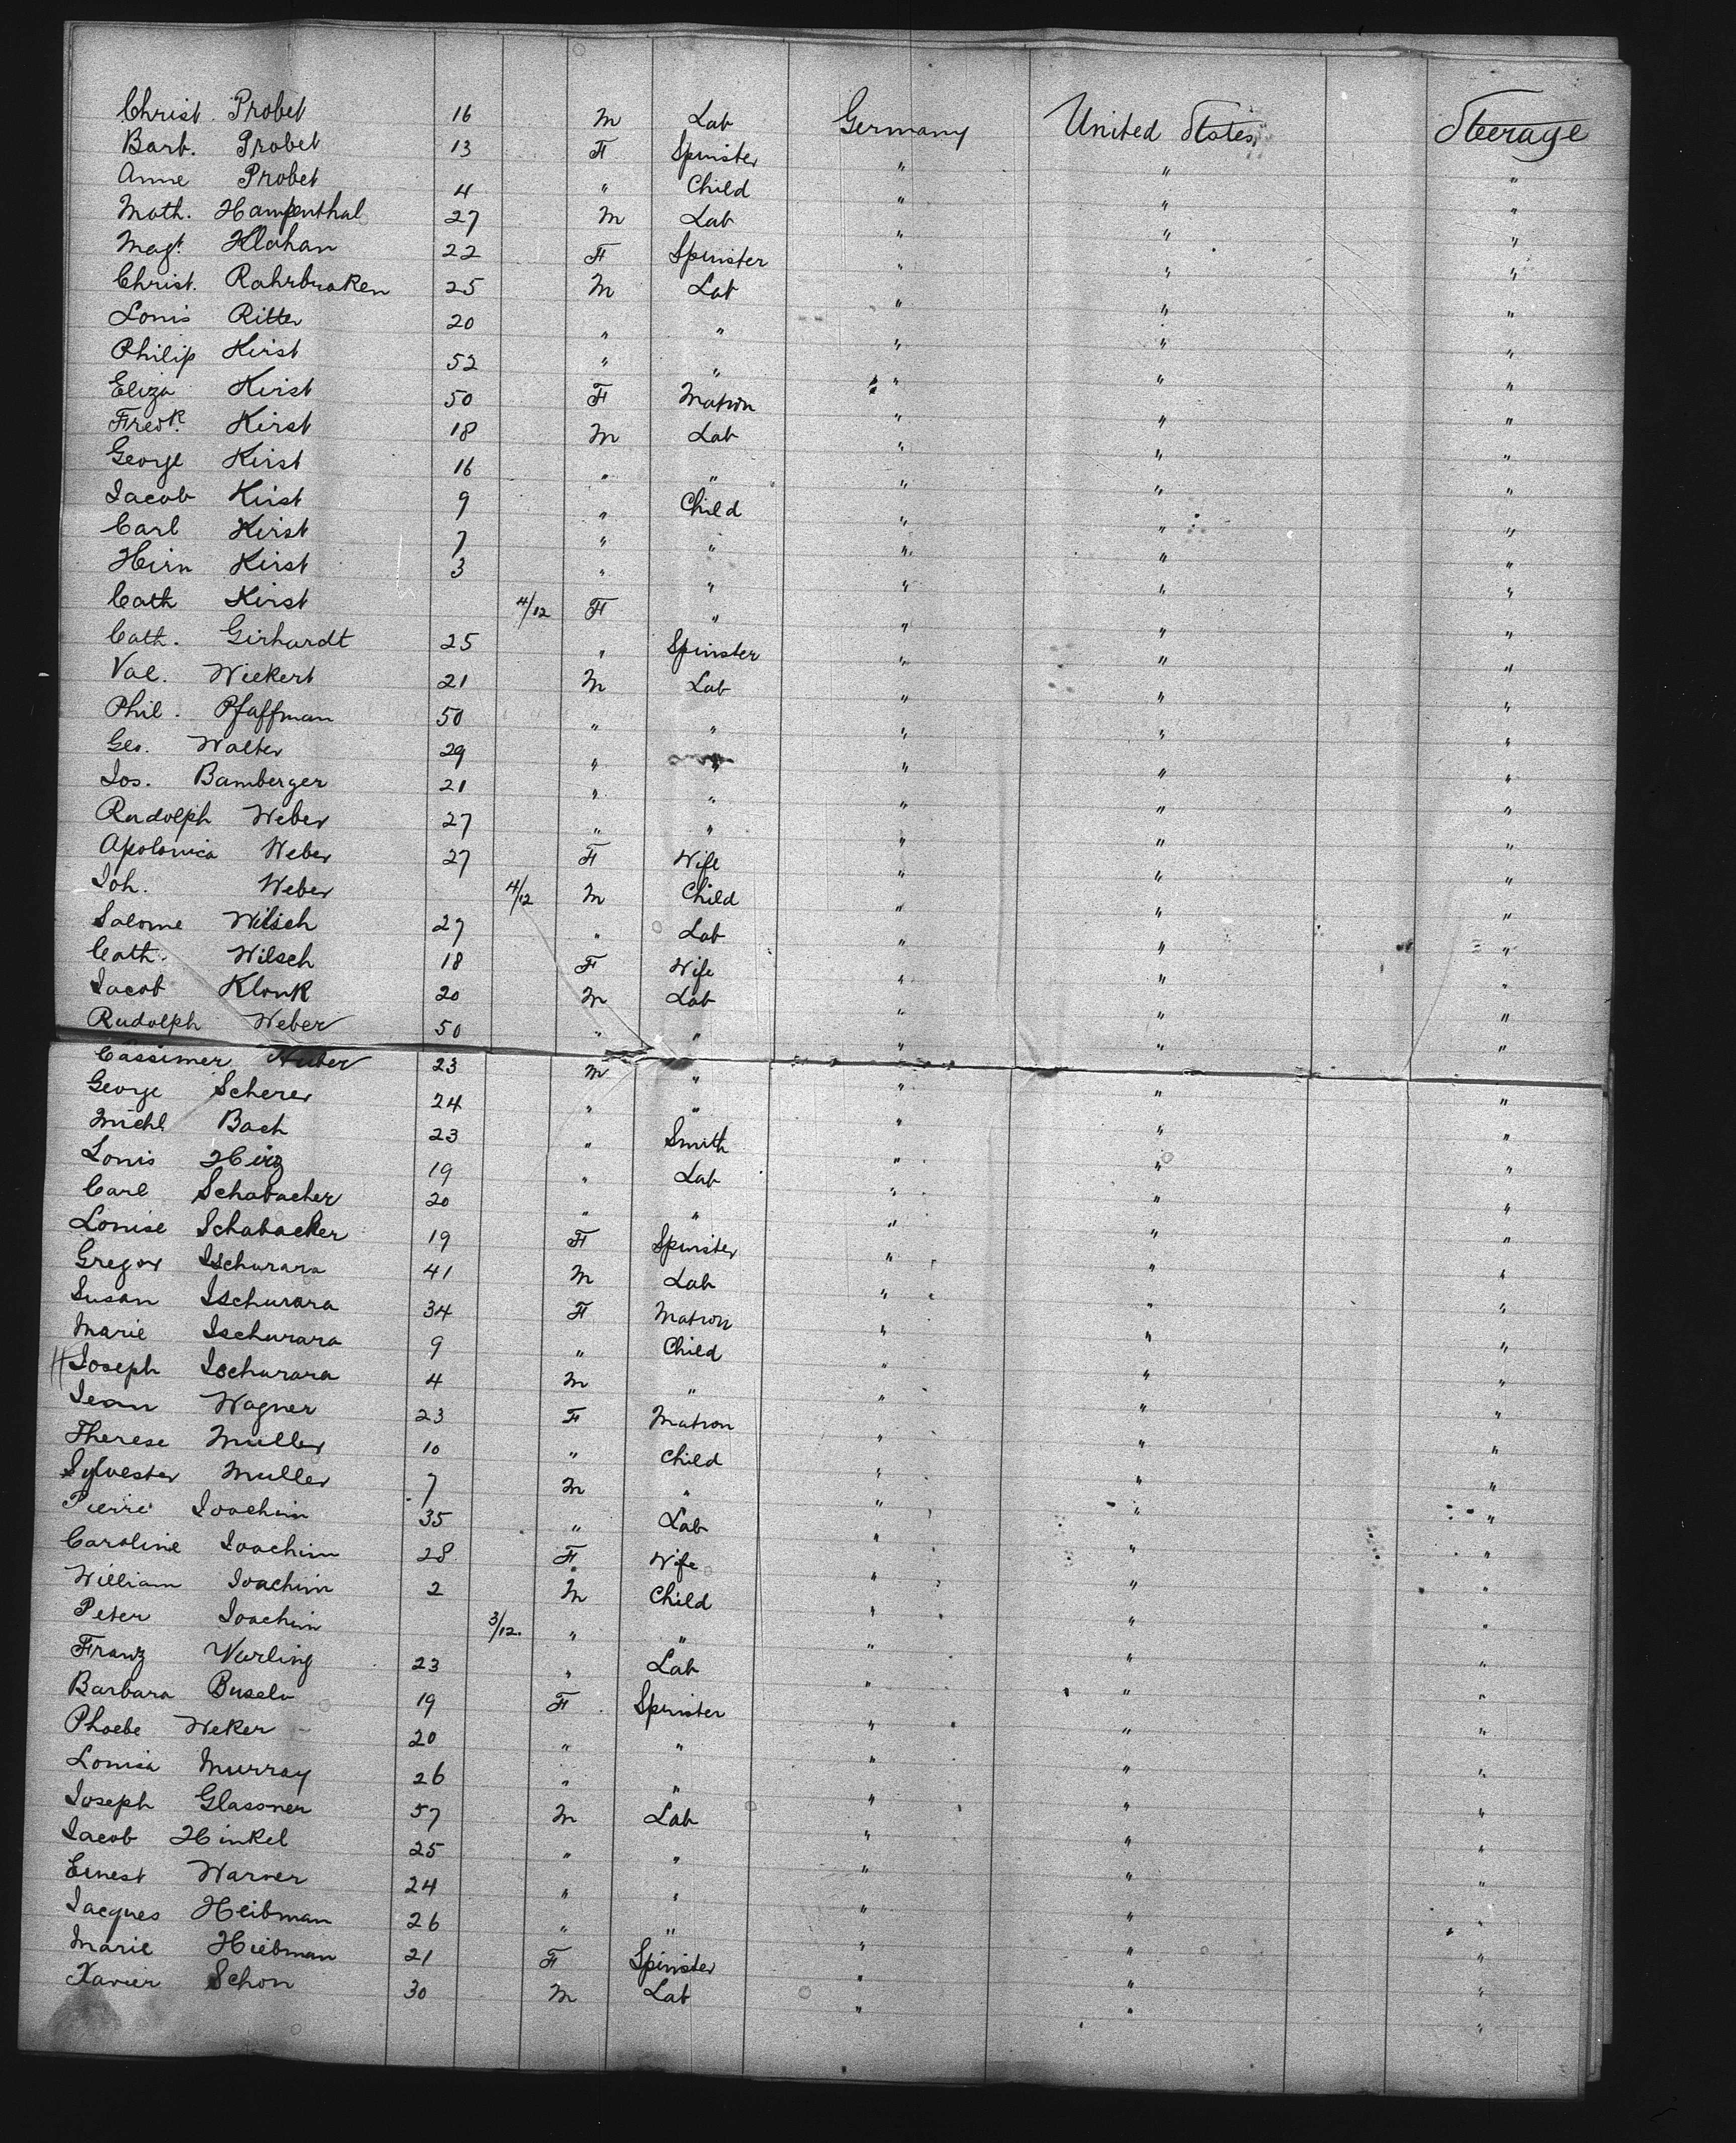 Christ. Probet 16 M Lab Germany United States Steerage
Barb. Probet 13 F Spinster " " "
Anne Probet 4 " Child " " "
Math. Hampenthal 27 M Lab " " "
Magt. Klahan 22 F Spinster " " "
Christ. Rahrbraken 25 M Lab " " "
Louis Ritter 20 " " " " "
Philip Kirst 52 " " " " "
Eliza Kirst 50 F Matron " " "
Fredk. Kirst 18 M Lab " " "
George Kirst 16 " " " " "
Jacob Kirst 9 " Child " " "
Carl Kirst 7 " " " " "
Hein Kirst 3 " " " " "
Cath Kirst 4/12 F " " " "
Cath. Girhardt 25 " Spinster " " "
Val. Wiekert 21 M Lab " " "
Phil. Pfaffman 50 " " " " "
Geo. Walter 29 " " " " "
Jos. Bamberger 21 " " " " "
Rudolph Weber 27 " " " " "
Apolonica Weber 27 F Wife " " "
Joh. Weber 4/12 M Child " " "
Salome Wilsch 27 " Lab " " "
Cath. Wilsch 18 F Wife " " "
Jacob Klonk 20 M Lab " " "
Rudolph Weber 50 " " " " "
Cassimer Huber 23 M " " " "
George Scherer 24 " " " " "
Michl Bach 23 " Smith " " "
Louis Hirz 19 " Lab " " "
Carl Schabacher 20 " " " " "
Louise Schabacker 19 F Spinster " " "
Gregor Ischurara 41 M Lab " " "
Susan Ischurara 34 F Matron " " "
Marie Ischurara 9 " Child " " "
Joseph Ischurara 4 M " " " "
Jean Wagner 23 F Matron " " "
Therese Muller 10 " Child " " "
Sylvester Muller 7 M " " " "
Pierre Joachim 35 " Lab " " "
Caroline Joachim 28 F Wife " " "
William Joachim 2 M Child " " "
Peter Joachim 3/12. " " " " "
Franz Varling 23 " Lab " " "
Barbara Busele 19 F Spinster " " "
Phoebe Weker 20 " " " " "
Louisa Murray 26 " " " " "
Joseph Glassner 57 M Lab " " "
Jacob Hinkel 25 " " " " "
Ernest Warner 24 " " " " "
Jacques Heibman 26 " " " " "
Marie Hiebman 21 F Spinster " " "
Xavier Schon 30 M Lab " " "